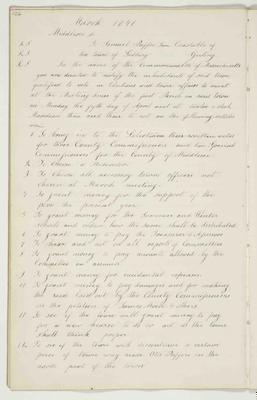 March 1841
Middlesex ss
To Samuel Puffer Constable of
the town of Greeting
In the name of the Commonwealth of Massachusetts
you are directed to notify the inhabitants of said town
qualified to vote in Elections and town affairs to meet
at the Meeting house of the first Parish in said town
on Monday the fifth day of April next at
then and there to act on the following articles
viz.
1 To bring in to the Selectmen their written votes
for three County Commissioners and two Special
Commissioners for the County of Middlesex
2 To Choose a Moderator
3 To Choose all necessary town officers not
chosen at March meeting.
To grant money for the support of the
poor the present year
To grant money for the Summer and Winter
Schools and how the same shall be distributed
6 To grant money to pay the
7 To hear and act on all reports of Committees
8 To grant money to pay amounts allowed by the
Committee on accounts
9 To grant money for incidental expenses
To grant money to pay damages and for making
the road laid out by the County Commissioners
on the petition of
11 To see if the town will grant money to pay
for a new hearse to do or act as the town
shall think proper
12 To see if the town will discontinue a certain
piece of town way near Puffers in the
north part of the town